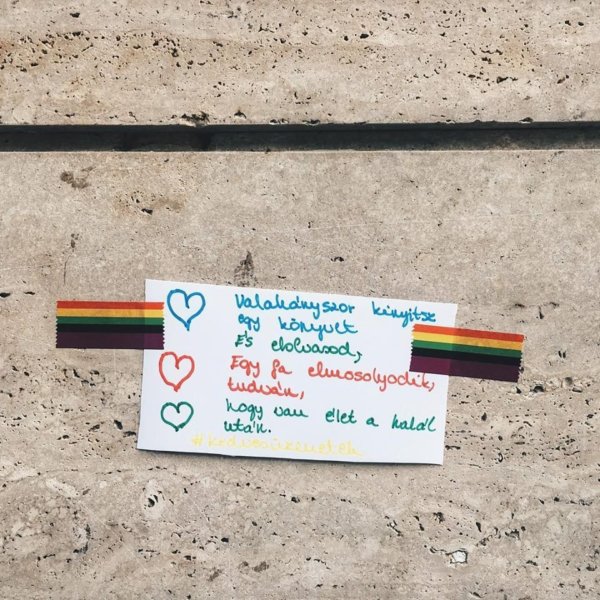 Valahányszor kinyitsz
egy könyvet
És elolvasod,
Egy fa elmosolyodik,
tudván,
hogy van élet a halál
után.
#kedvesüzenetek